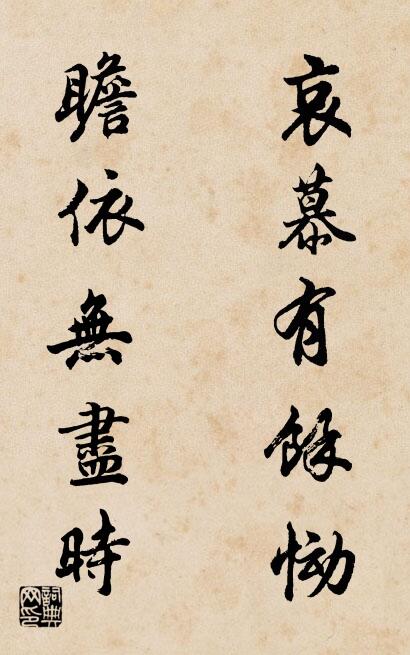 哀慕有餘恸
瞻依無盡時
詞典网印